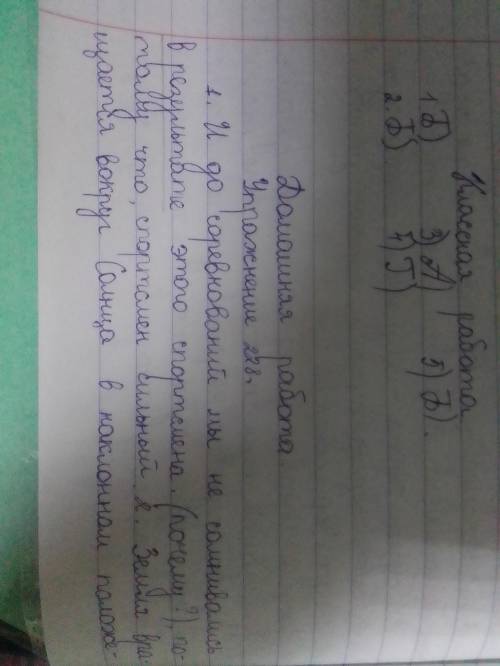 Классная работа
1 Б) 3) А) 5) Б).
2. Б) 4) Г)
Домашняя работа.
Упражнение 228.
1. И до соревнований мы не сомнивались
в результате этого спортсмена. (почему?) по-
тому что, спортсмен сильный. 2. Земля вра-
щается вокруг Солнца в наклонном положе-